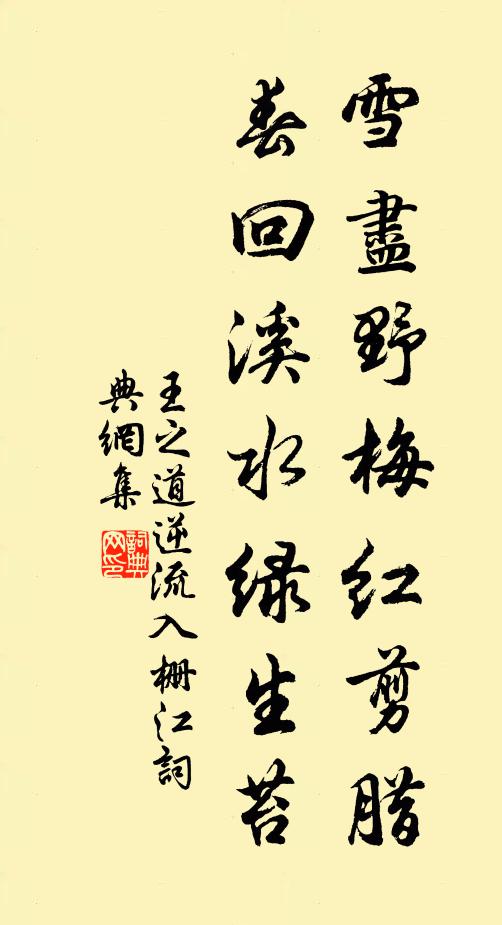 雪盡野梅紅剪腊
春回溪水绿生苔
王之道逆流入柵江詞
典網集
詞典网印